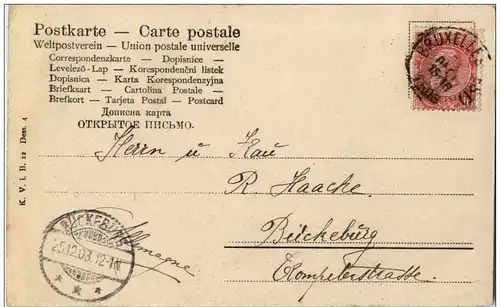 Postkarte — Carte postale
Weltpostverein — Union postale universelle
Correspondenzkarte — Dopisnice —
Levelező-Lap — Korespondenční lístek
Dopisnica — Karta Korespondenzyjna
Briefkaart — Cartolina Postale —
Brefkort — Tarjeta Postal — Postcard
Дописна карта
ОТКРЫТОЕ ПИСЬМО.
BRUXELLES
K. V. i. B. 12 Dess. 4
Herrn u Frau
R Haacke
Bückeburg
Allemagne
BÜCKEBURG
25.12.03.12-1N